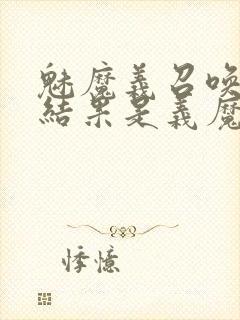 魅魔義召喚
結果是義魔
悸憶